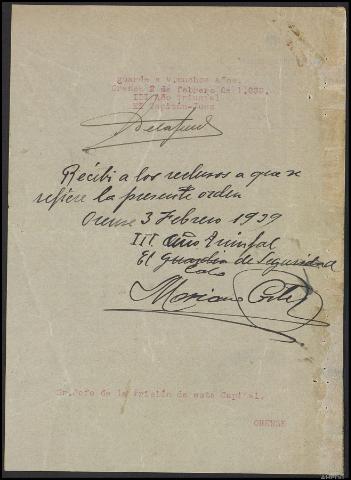 guarde a V. muchos años.
Orense 2 de febrero de 1.939.
III Año Triunfal
El Capitán-Juez
Recibí a los reclusos a que se
refiere la presente orden
Orense 3 Febrero 1939
III. Año Triunfal
El Guardia de Seguridad
Mariano
Sr. Jefe de la Prisión de esta Capital.
ORENSE